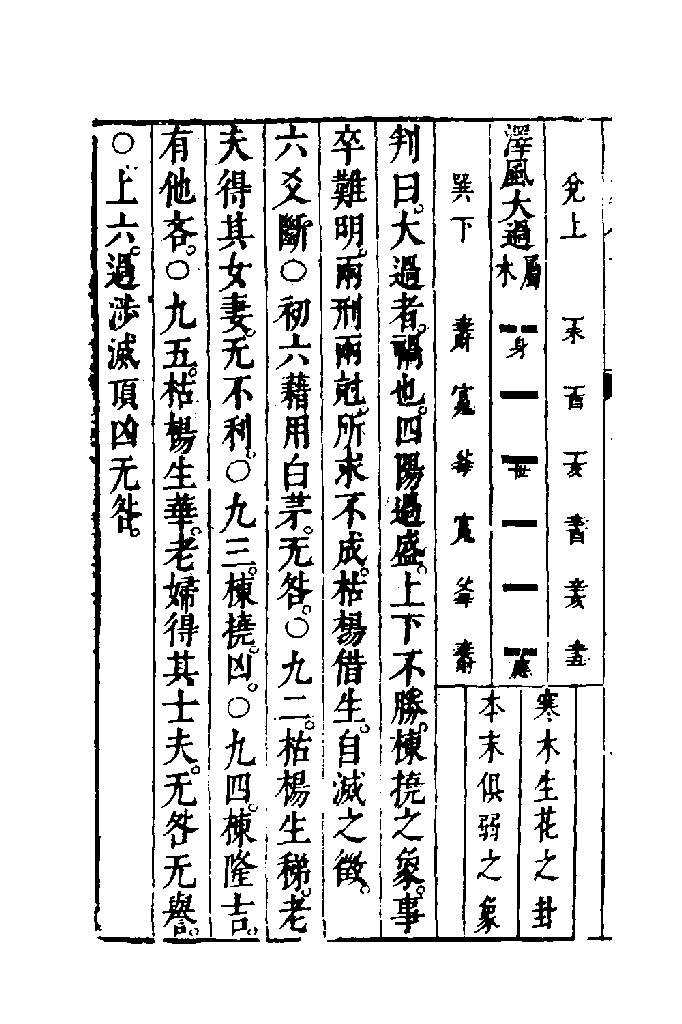 兌上 丁未 丁酉 丁亥 辛酉 辛亥 辛丑
澤風大過屬木 身 世 應
巽下 妻財 官鬼 父母 官鬼 父母 妻財
寒木生花之卦
本末俱弱之象
判曰。大過者。禍也。四陽過盛。上下不勝。棟撓之象。事
卒難明。兩刑兩尅。所求不成。枯楊借生。自滅之徵。
六爻斷○初六藉用白茅。无咎。○九二。枯楊生稊。老
夫得其女妻。无不利。○九三。棟撓。凶。○九四。棟隆吉。
有他吝。○九五。枯楊生華。老婦得其士夫。无咎无譽。
○上六。過涉滅頂凶无咎。